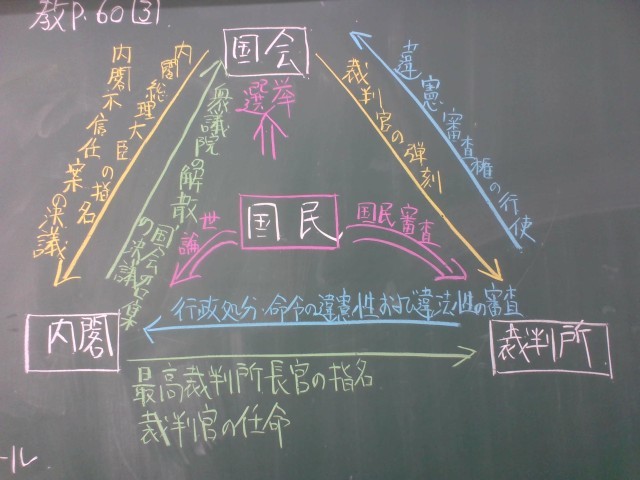 教P.60 ③
国会
内閣総理大臣の指名
内閣不信任案の決議
衆議院の解散
国会の召集
の決議
選挙
裁判官の弾刻
違憲審査権の行使
国民
世論
国民審査
行政処分・命令の違憲性および違法性の審査
内閣
裁判所
最高裁判所長官の指名
裁判官の任命
ール